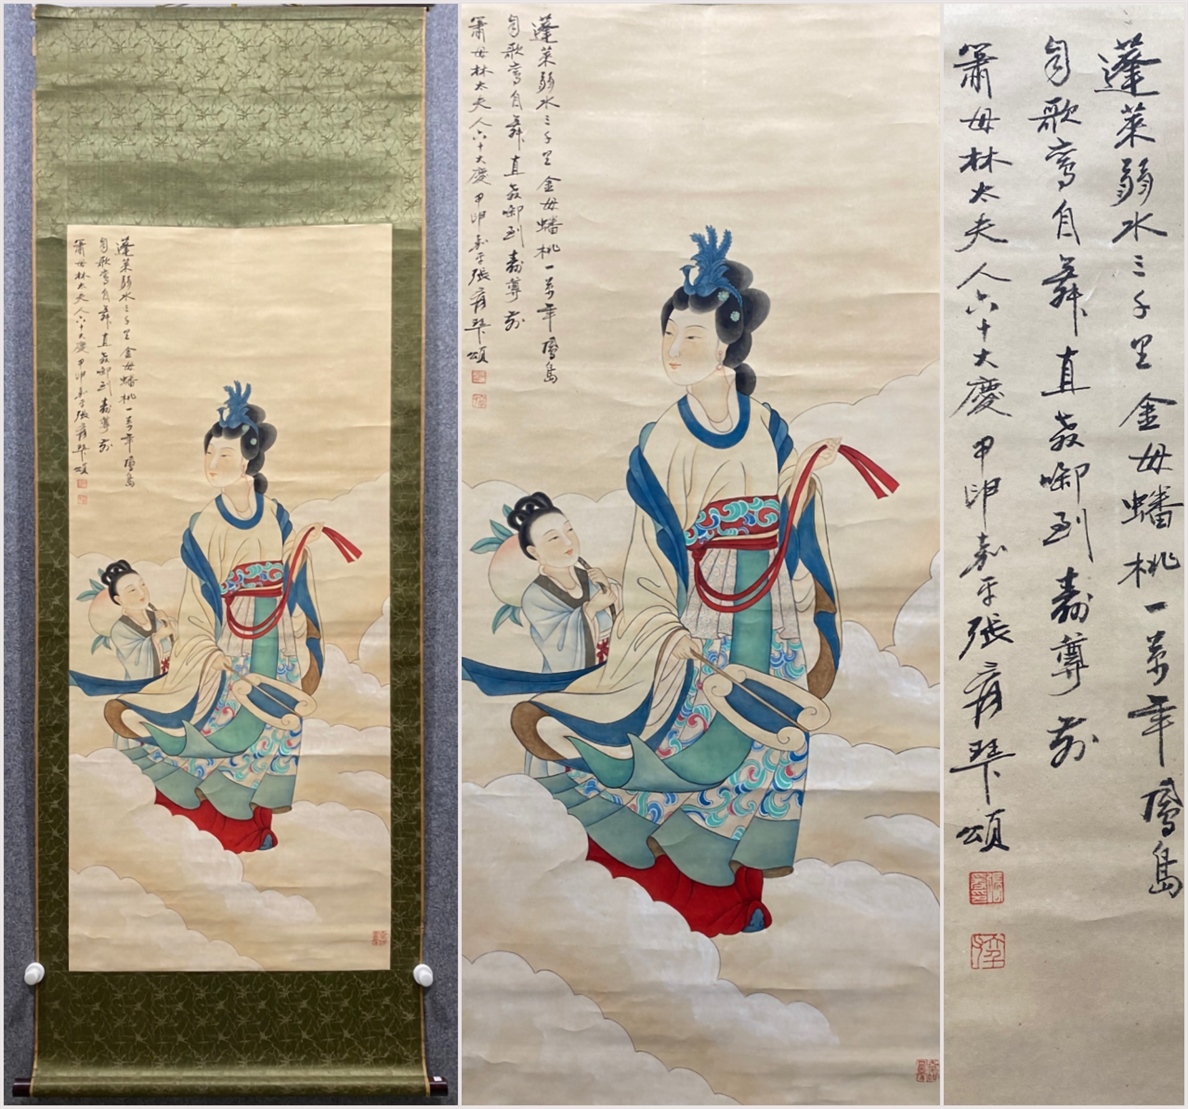 蓬萊弱水三千里金母蟠桃一萬年鳳島
自歌鸞自舞直教啣到壽尊前
簫母林太夫人六十大慶甲申嘉平張爰拜頌
蓬萊弱水三千里金母蟠桃一萬年鳳島
自歌鸞自舞直教啣到壽尊前
簫母林太夫人六十大慶甲申嘉平張爰拜頌
蓬萊弱水三千里金母蟠桃一萬年鳳島
自歌鸞自舞直教啣到壽尊前
簫母林太夫人六十大慶甲申嘉平張爰拜頌